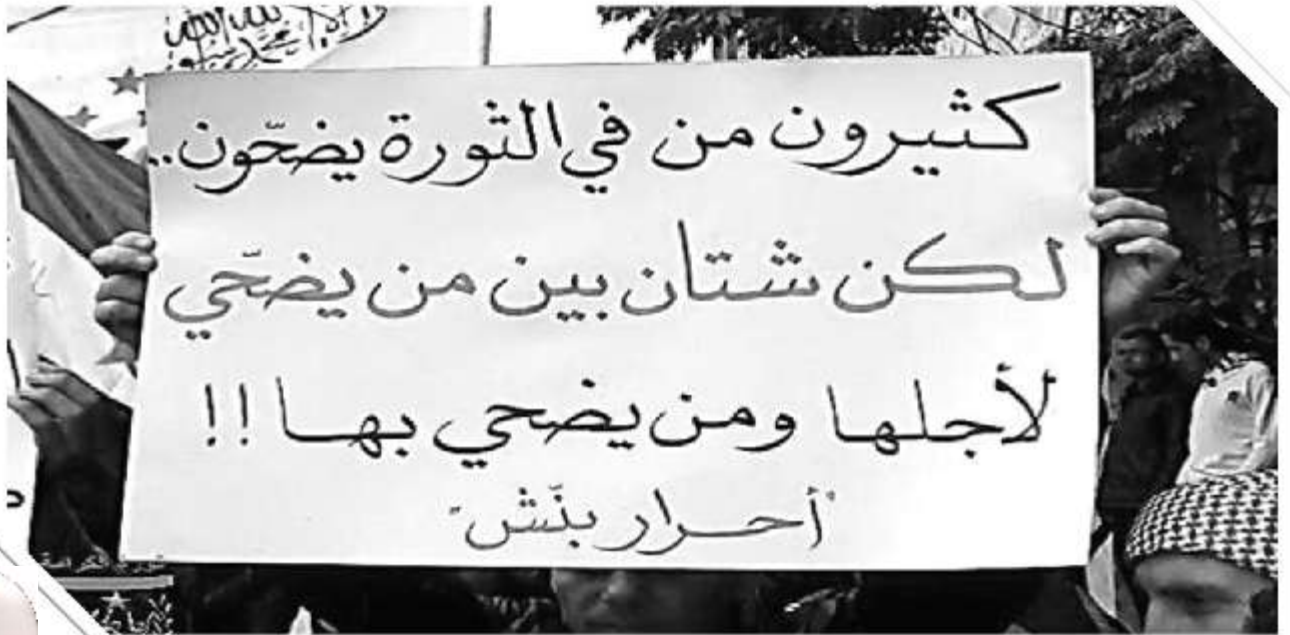 كثيرون من في الثورة يضحّون..
لكن شتان بين من يضحّي
لأجلها ومن يضحي بها!!
"أحرار بنّش"